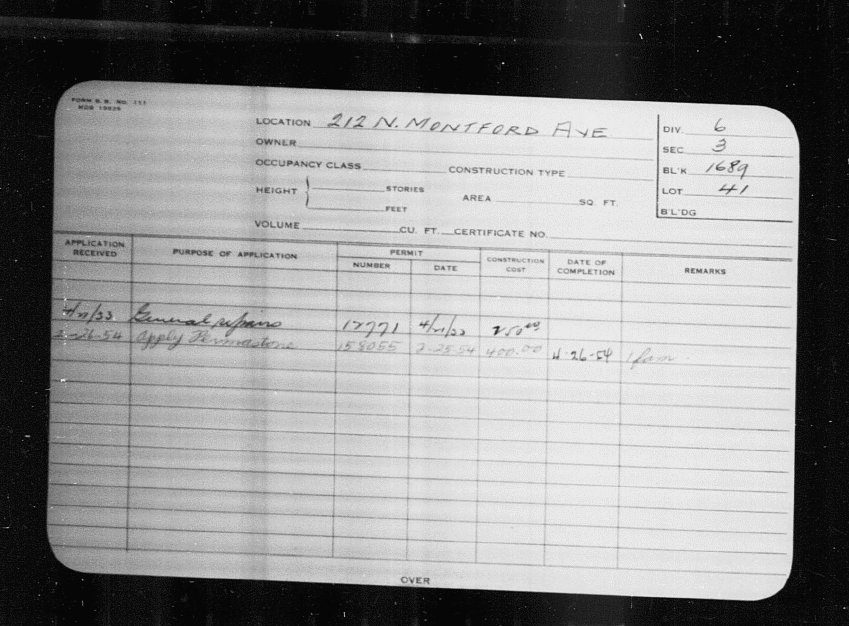 FORM B. B. NO. 111
LOCATION 212 N. MONTFORD AVE
OWNER
OCCUPANCY CLASS CONSTRUCTION TYPE
HEIGHT STORIES AREA SQ. FT.
FEET
VOLUME CU. FT. CERTIFICATE NO.
DIV. 6
SEC. 3
BL'K 1689
LOT 41
B'L'DG
APPLICATION RECEIVED PURPOSE OF APPLICATION PERMIT NUMBER DATE CONSTRUCTION COST DATE OF COMPLETION REMARKS
General repairs 12771
2-26-54 Apply Permastone 158055 2-25-54 400.00 4-26-54 1 fam.
OVER